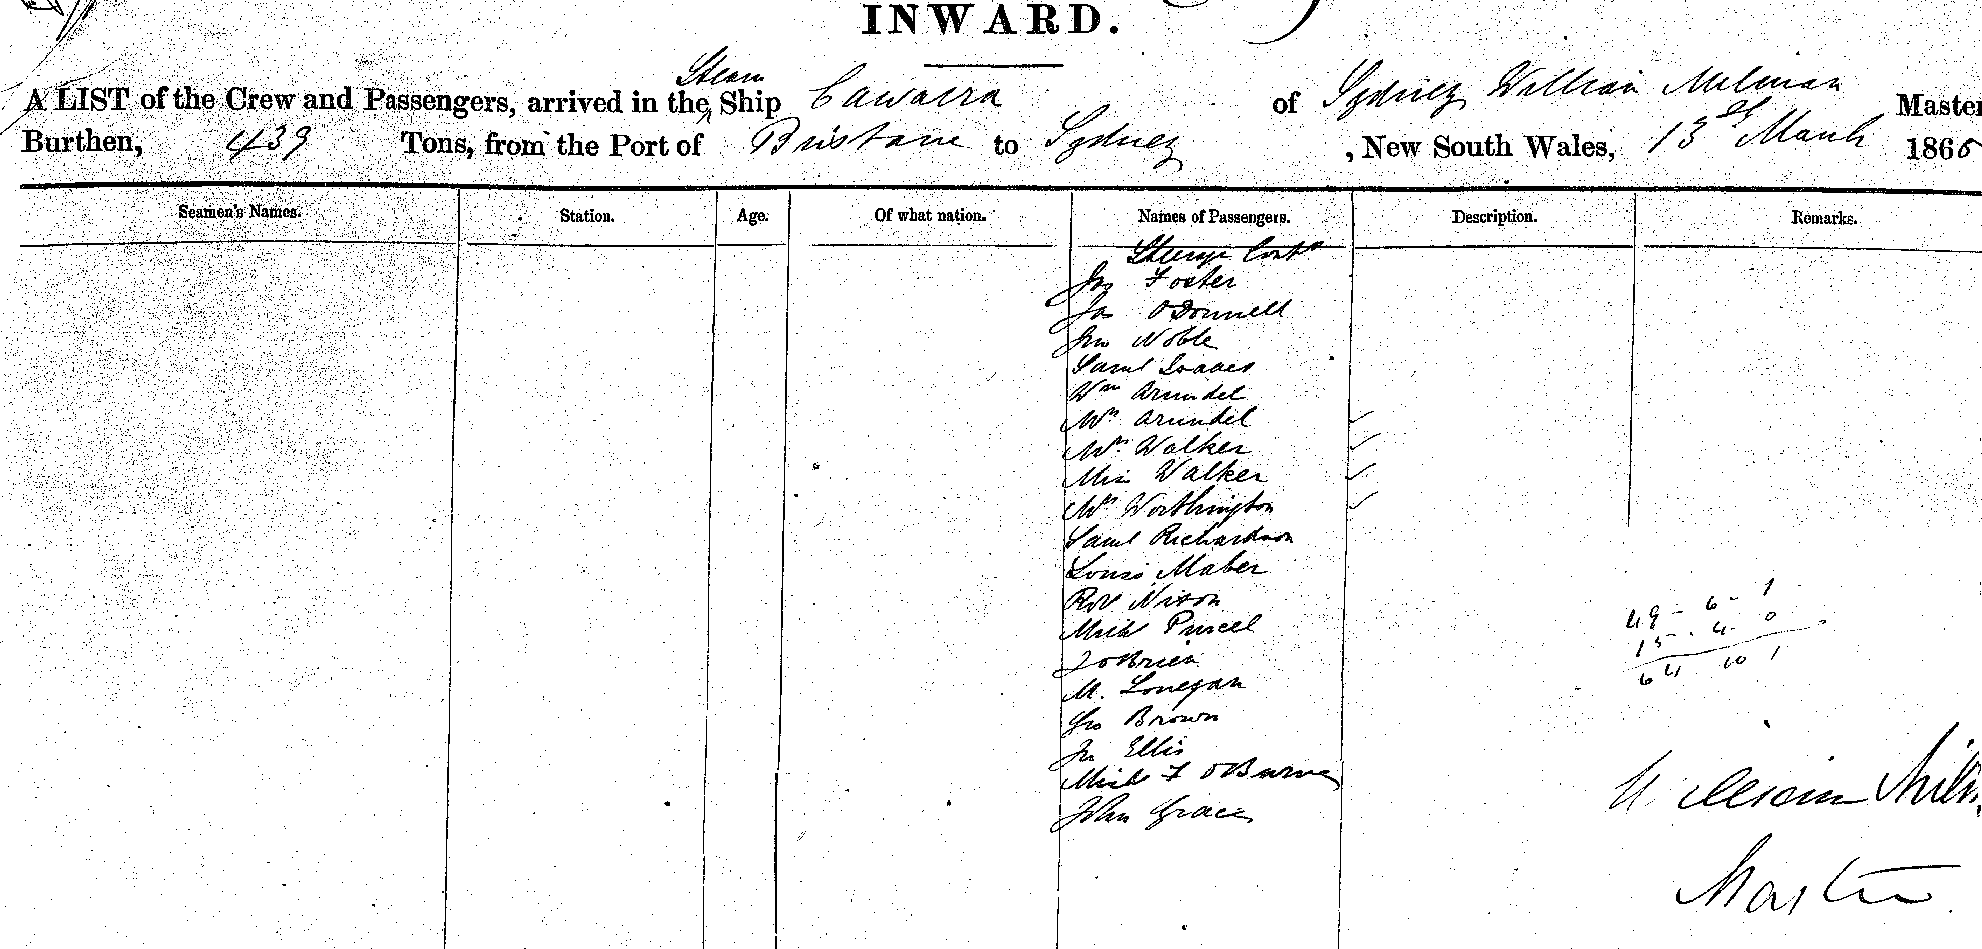 INWARD.
Steam
A LIST of the Crew and Passengers, arrived in the Ship Cawarra of Sydney William Milman Master
Burthen, 439 Tons, from the Port of Brisbane to Sydney , New South Wales, 13th March 1865
Seamen's Names. Station. Age. Of what nation. Names of Passengers. Description. Remarks.
Steerage Contd
Jas Foster
Jas O'Donnell
Jno Noble
Saml Isaacs
Wm Arundel
Mrs Arundel
Mrs Walker
Miss Walker
Mrs Worthington
Saml Richardson
Louis Maber
Robt Nixon
Mich Purcell
J O'Brien
M. Lonegan
Geo Brown
Jno Ellis
Mich F O'Burne
John Grace
49 - 6 - 1
15 - 4 - 0
64 10 1
William Milm
Master